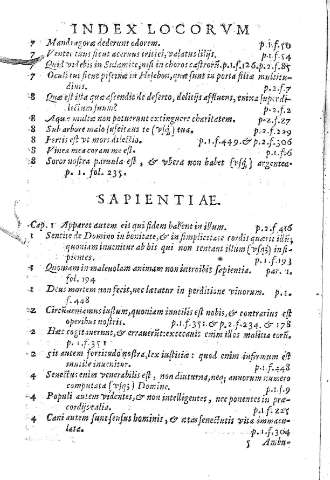 INDEX LOCORVM
7 Mandragoræ dederunt odorem. p.1.f.50
7 Venter tuus sicut aceruus tritici, valatus lilijs. p.1.f.54
7 Quid videbis in Sulamite, nisi choros castrorũ. p.1.f.126.p.2.f.85
7 Oculi tui sicut piscinæ in Hesebon, quæ sunt in porta filiæ multitu-
dinis. p.2.f.7
8 Quæ est ista quæ ascendit de deserto, delicijs affluens, enixa super di-
lectum suum? p.2.f.2
8 Aquæ multæ non potuerunt extinguere charitatem. p.2.f.27
8 Sub arbore malo suscitaui te (vsq;) tua. p.2.f.229
8 Fortis est vt mors dilectio. p.1.f.449.& p.2.f.306
8 Vinea mea coram me est. p.1.f.6
8 Soror nostra paruula est, & vbera non habet (vsq;) argentea.
p. 1. fol. 235.
SAPIENTIAE.
Cap. 1 Apparet autem eis qui fidem habent in illum. p.2.f.416
1 Sentite de Domino in bonitate, & in simplicitate cordis quærite illũ,
quoniam inuenitur ab his qui non tentant illum (vsq;) insi-
pientes. p.1.f.193
1 Quoniam in maleuolam animam non introibit sapientia. par. 1.
fol. 194
1 Deus mortem non fecit, nec lætatur in perditione viuorum. p.1.
f.448
2 Circumueniamus iustum, quoniam inutilis est nobis, & contrarius est
operibus nostris. p.1.f.351.& p.2.f.234. & 178
2 Hæc cogitauerunt, & errauerũt: excæcauit enim illos malitia eorũ.
p. 1. f.351
2 Sit autem fortitudo nostra, lex iustitiæ: quod enim infirmum est
inutile inuenitur. p.1.f.448
4 Senectus enim venerabilis est, non diuturna, neq; annorum numero
computata (vsq;) Domine. p.1.f.448
4 Populi autem videntes, & non intelligentes, nec ponentes in præ-
cordijs talia. p.1.f.225
4 Cani autem sunt sensus hominis, & ætas senectutis vita immacu-
lata. p.1.f.304
5 Ambu-